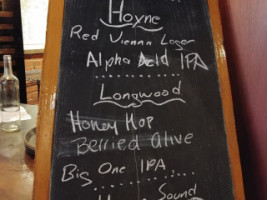 Hoyne
Red Vienna Lager
Alpha Acid IPA
Longwood
Honey Hop
Berried Alive
Big One IPA
Sound